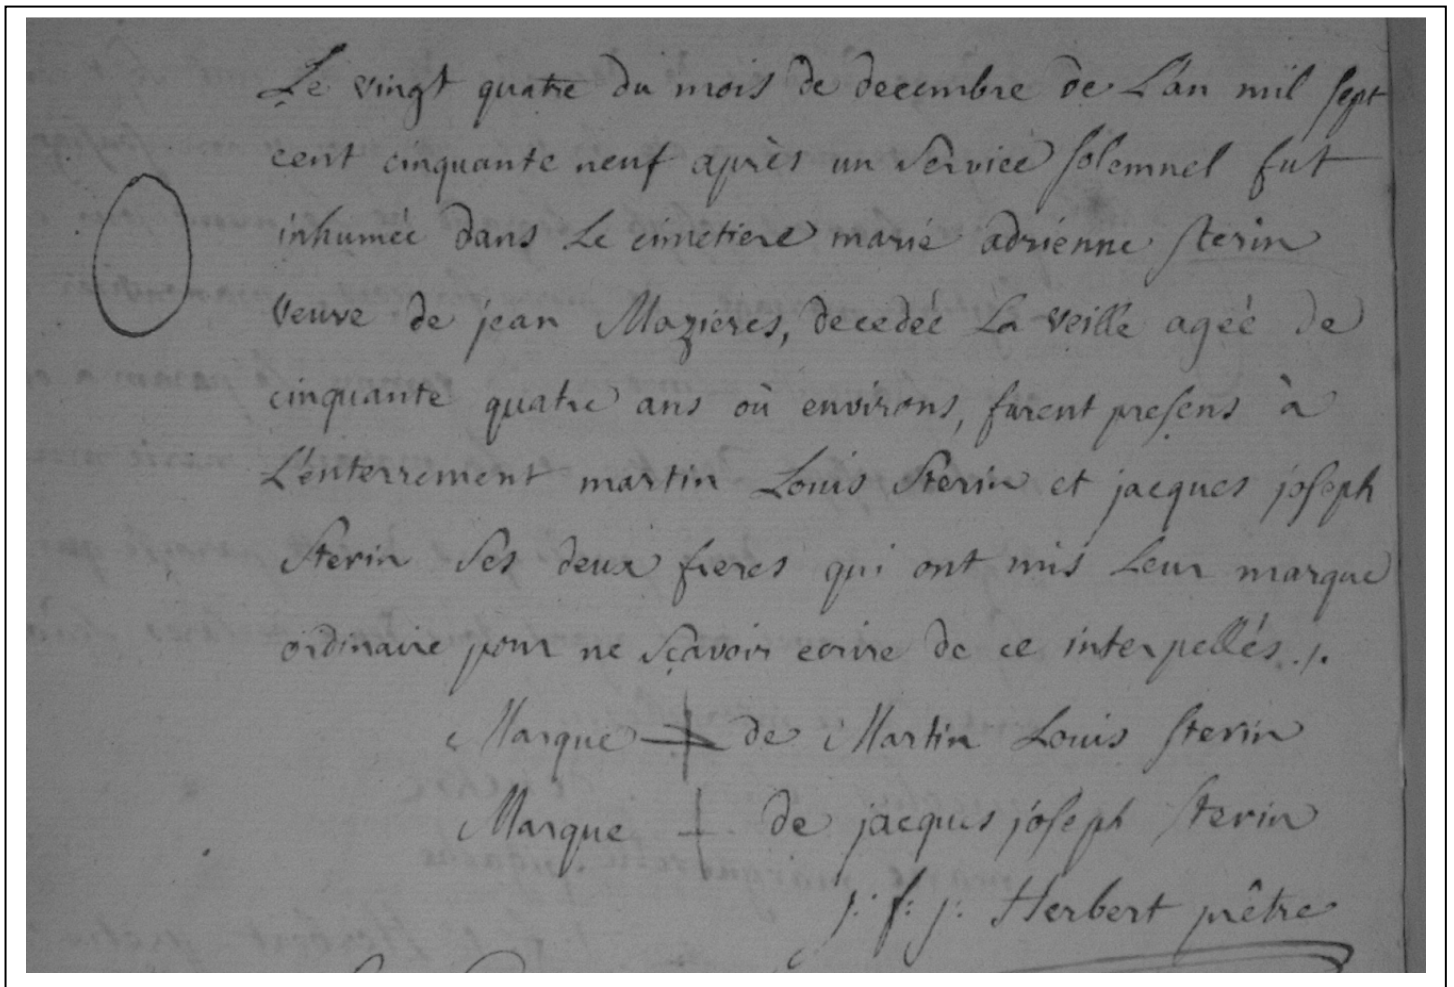 Le vingt quatre du mois de decembre de L'an mil sept
cent cinquante neuf après un Service solemnel fut
inhumée dans Le cimetiere marie adrienne sterin
veuve de jean Mazieres, decedée La veille agée de
cinquante quatre ans où environs, furent presens à
L'enterrement martin Louis Sterin et jacques joseph
Sterin Ses deux freres qui ont mis Leur marque
ordinaire pour ne Sçavoir ecrire de ce interpellés ./.
Marque de Martin Louis sterin
Marque de jacques joseph sterin
j: f: j: Herbert prêtre